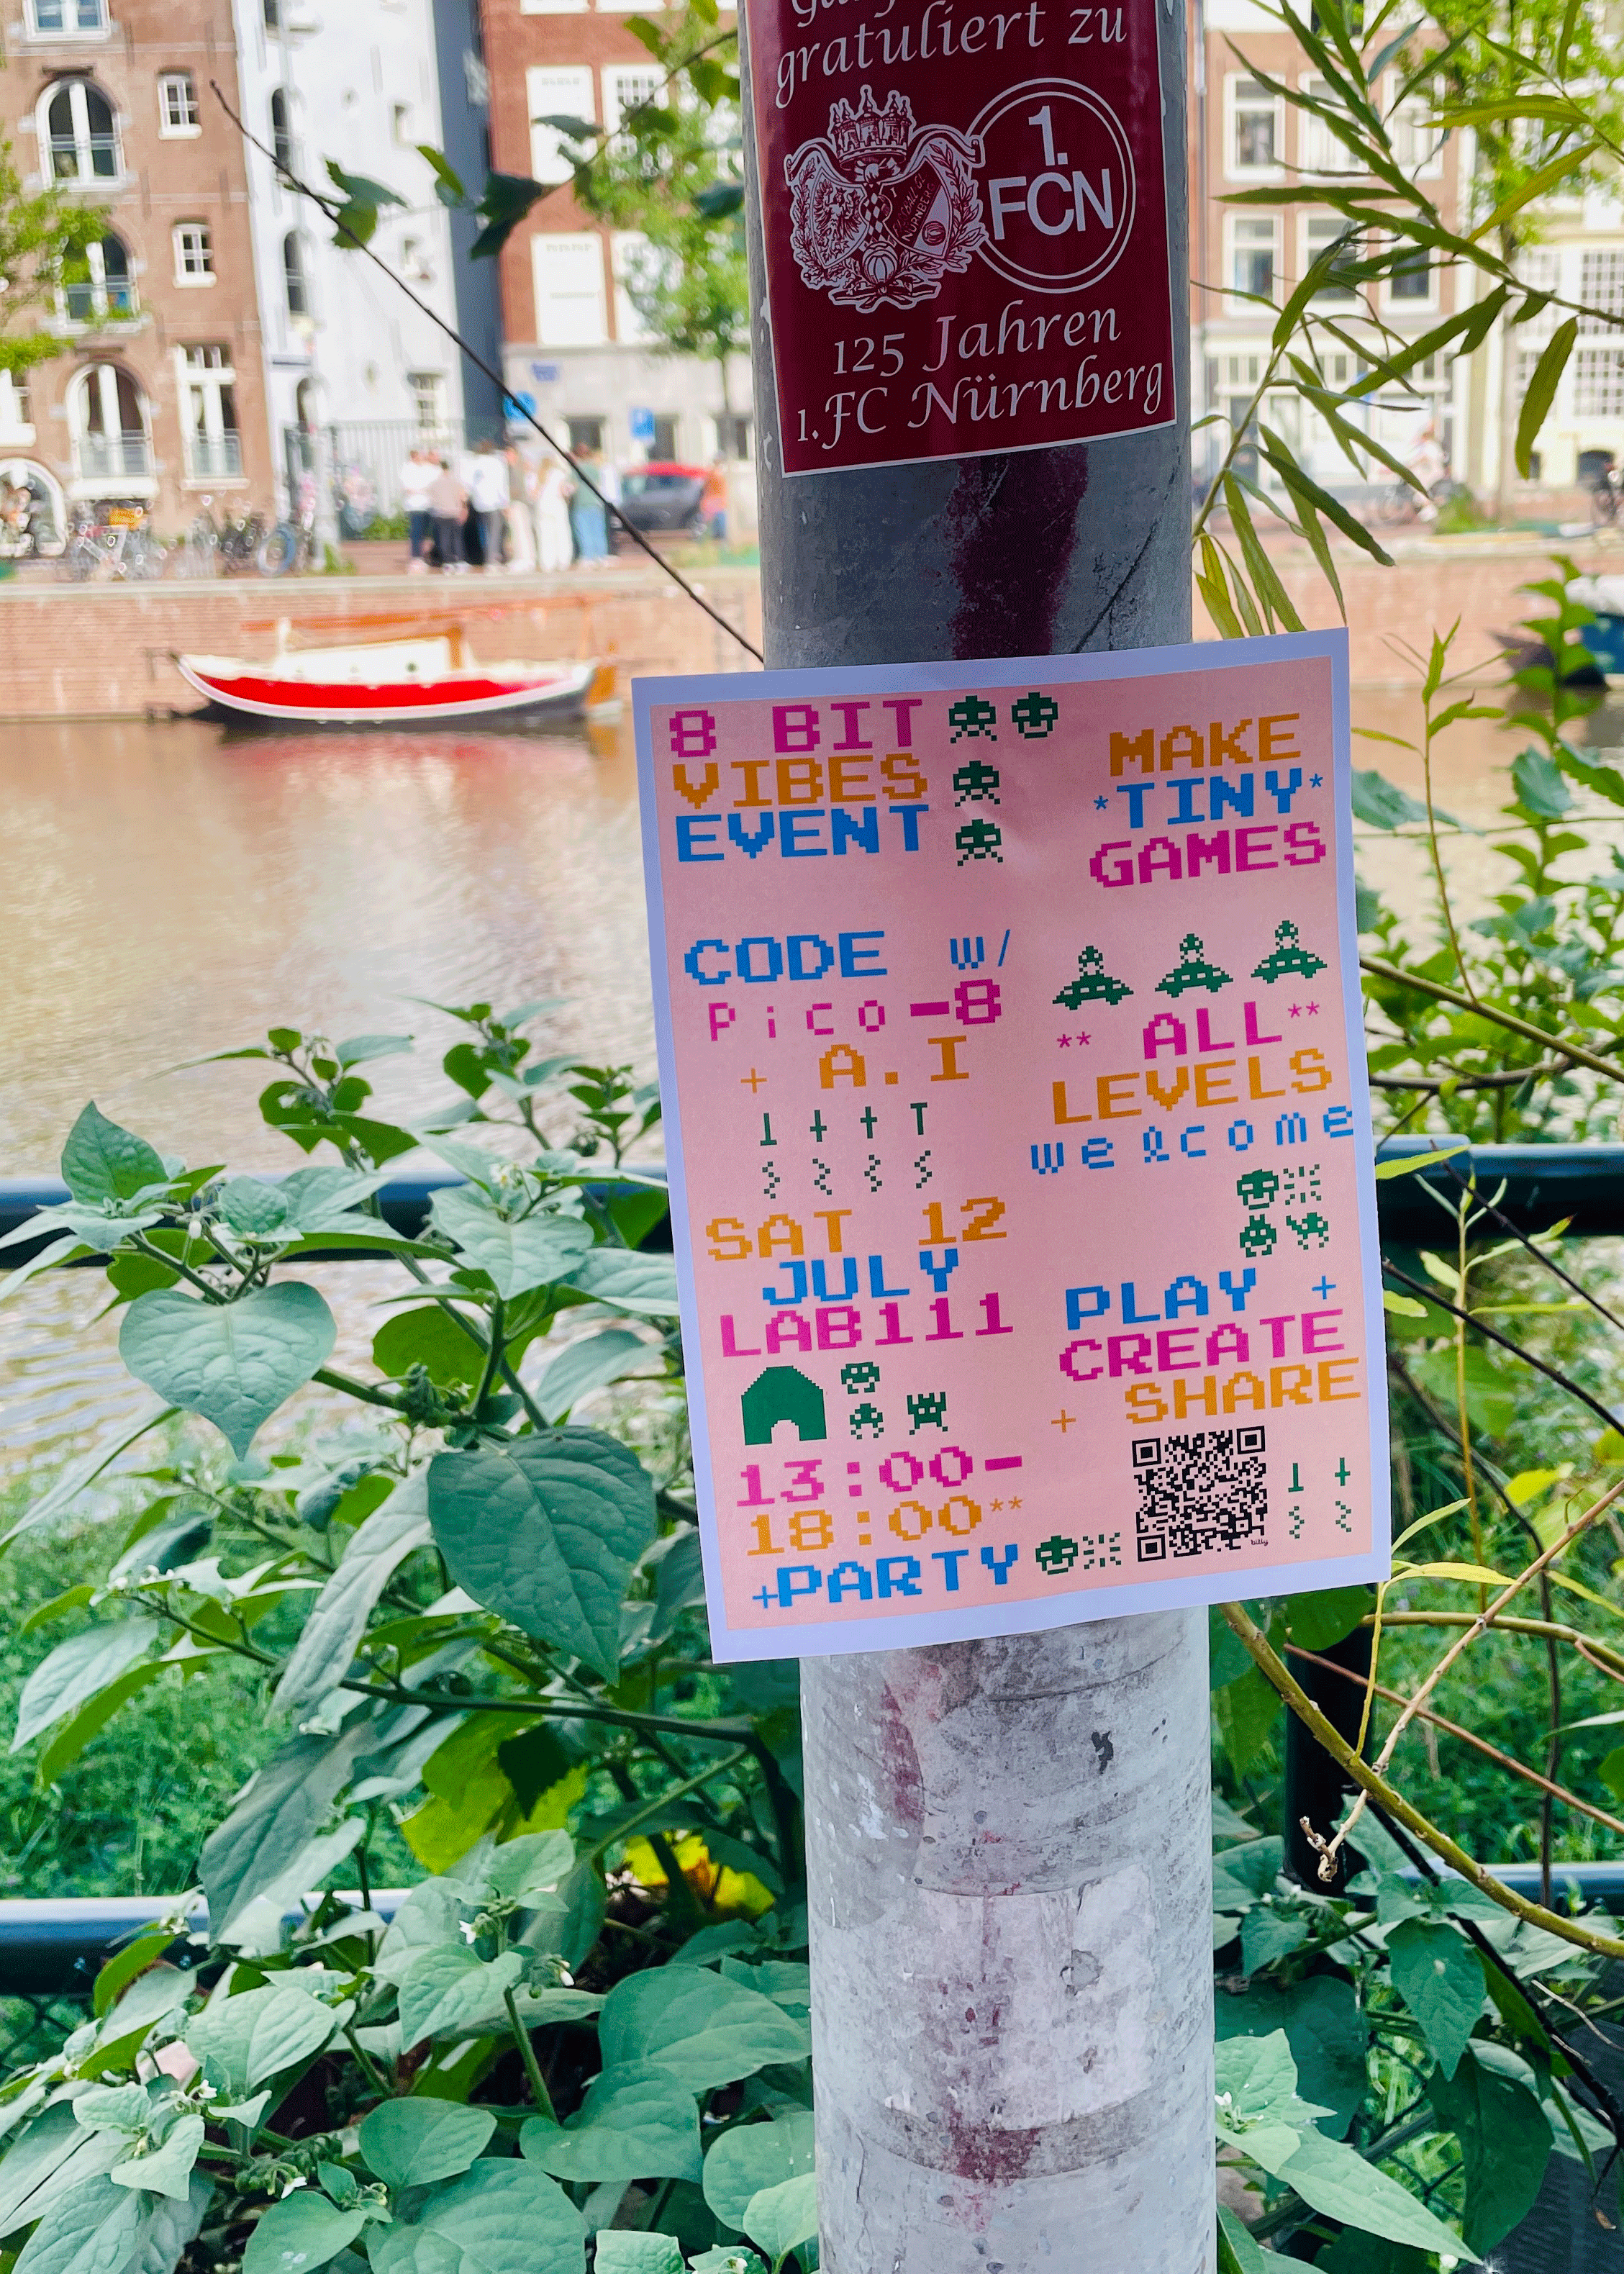 gratuliert zu
1.
FCN
125 Jahren
1. FC Nürnberg
8 BIT
VIBES
EVENT
MAKE
*TINY*
GAMES
CODE w/
Pico-8
+ A.I
** ALL **
LEVELS
welcome
SAT 12
JULY
LAB111
PLAY +
CREATE
+ SHARE
13:00-
18:00**
+PARTY
billy